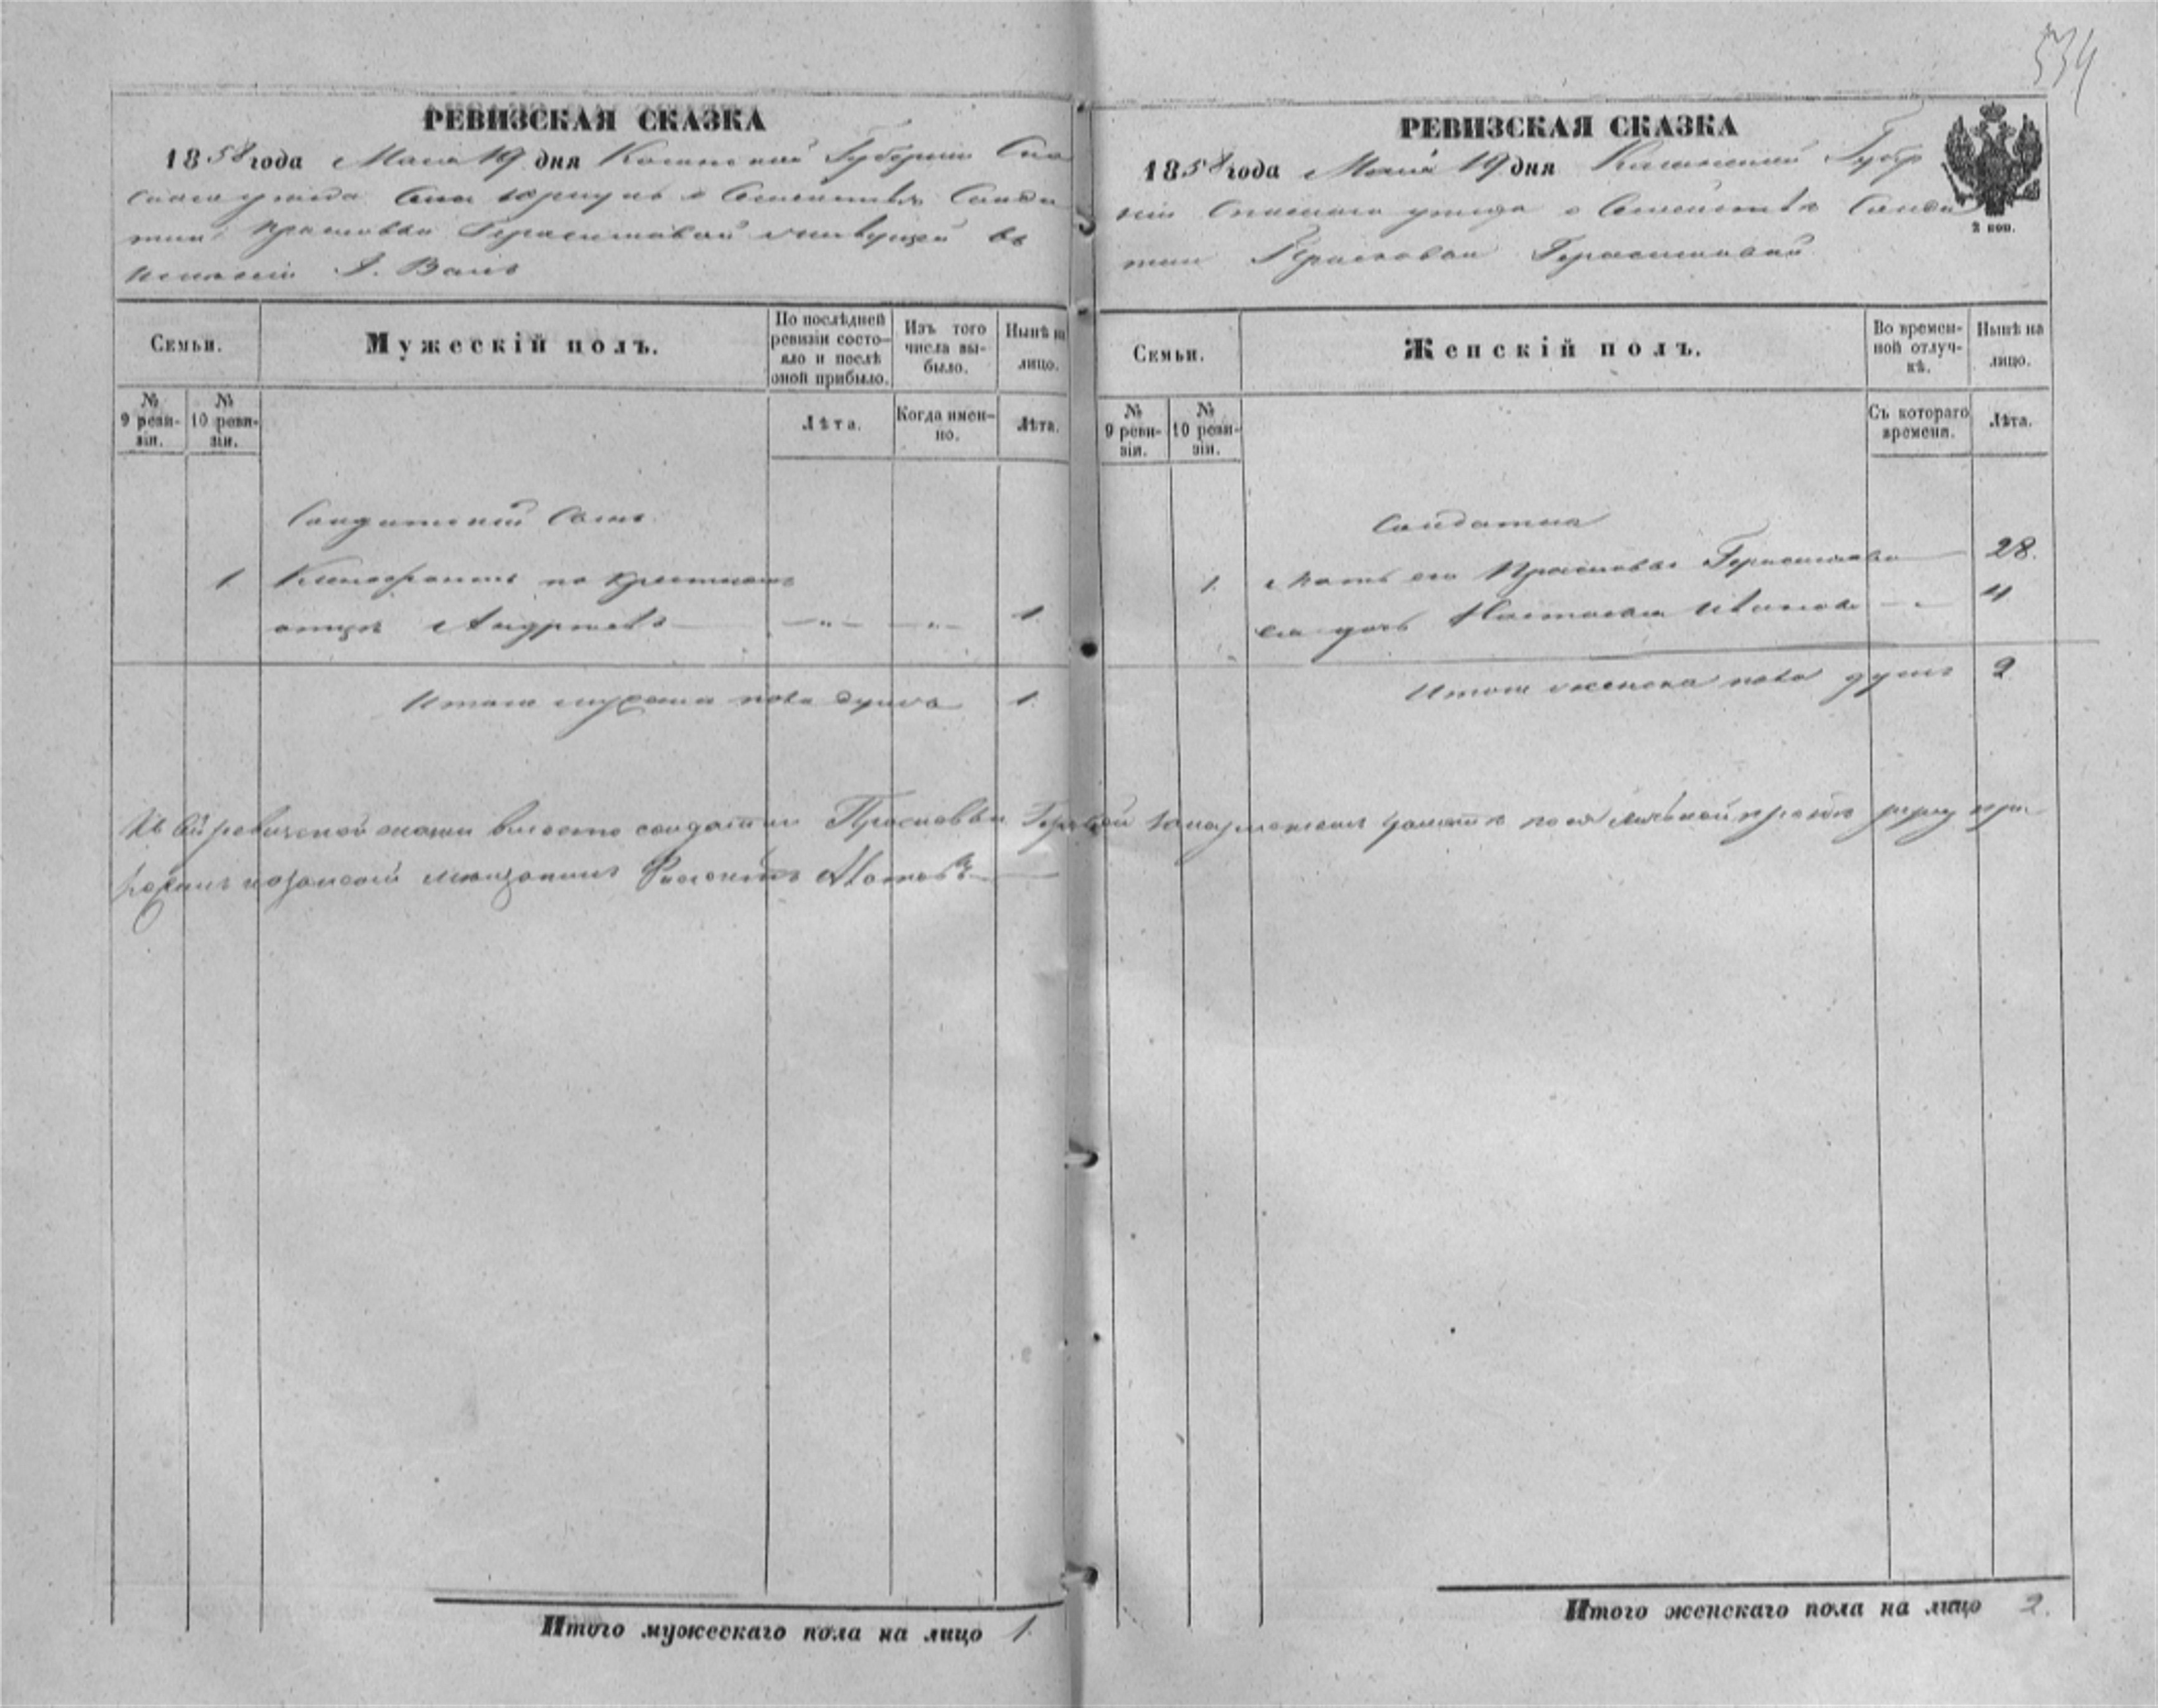 534
РЕВИЗСКАЯ СКАЗКА
1858 года Маія 19 дня Казанской Губерніи Спа
скаго уезда о Семействе Солда
тки Прасковьи Герасимовой живущей въ
Семьи.
Мужескій полъ.
По послѣдней ревизіи состояло и послѣ оной прибыло.
Изъ того числа выбыло.
Нынѣ на лицо.
№ 9 ревизіи.
№ 10 ревизіи.
Лѣта.
Когда именно.
Лѣта.
Солдатскій Сынъ
1 Ксенофонтъ по крестному
отцу Андреевъ —„— —„— 1
Итого мужска пола душъ 1.
Итого мужескаго пола на лицо 1.
РЕВИЗСКАЯ СКАЗКА
1858 года Маія 19 дня Казанской Губер
ніи Спаскаго уезда о Семействе Солда
тки Прасковьи Герасимовой
2 коп.
Семьи.
Женскій полъ.
Во временной отлучкѣ.
Нынѣ на лицо.
№ 9 ревизіи.
№ 10 ревизіи.
Съ котораго времени.
Лѣта.
Солдатка
1. Мать его Прасковья Герасимова 28.
ея дочь Настасья Иванова 4
Итого женска пола душъ 2
Къ сей ревизской сказки вместо солдатки Прасковьи
казанской мещанинъ
Итого женскаго пола на лицо 2.